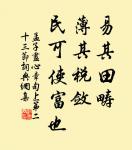 易其田疇
薄其稅斂
民可使富也
孟子盡心章句上第二
十三節詞典網集